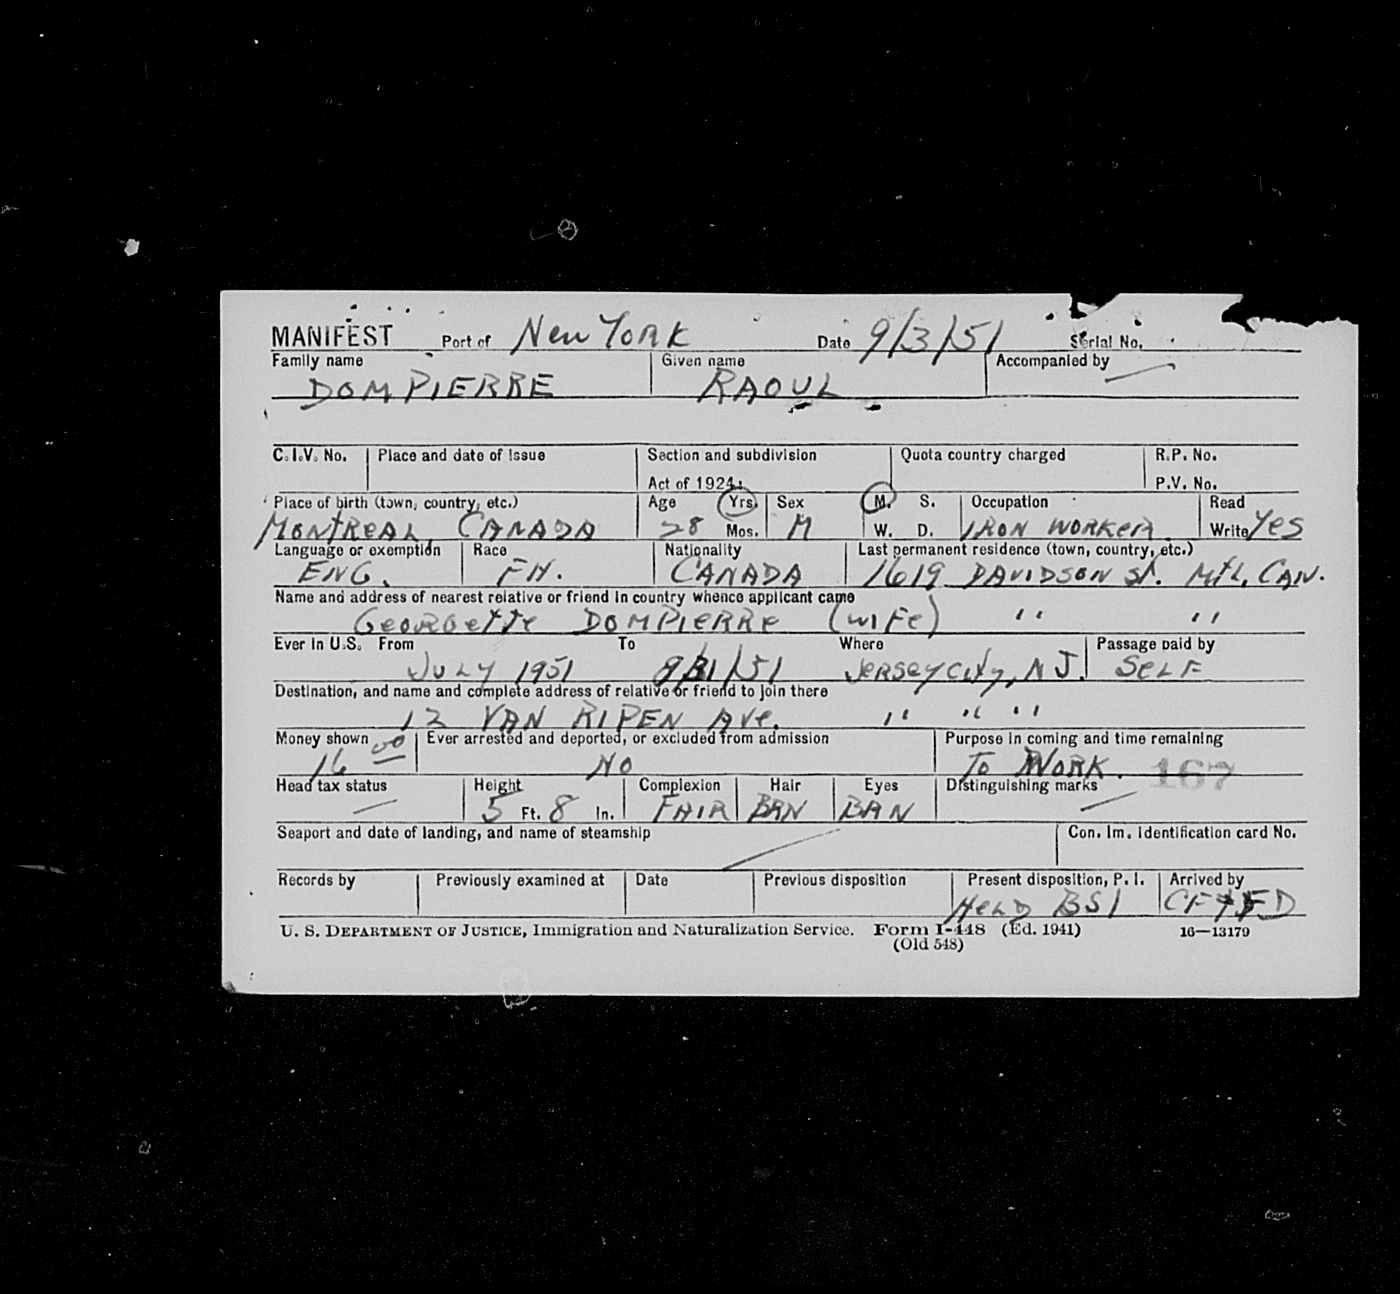 MANIFEST Port of New York Date 9/3/51 Serial No.
Family name Given name Accompanied by
DOMPIERRE RAOUL
C.I.V. No. Place and date of issue Section and subdivision Quota country charged R.P. No.
Act of 1924: P.V. No.
Place of birth (town, country, etc.) Age Yrs. Sex M. S. Occupation Read
MONTREAL, CANADA 28 Mos. M W. D. IRON WORKER Write Yes
Language or exemption Race Nationality Last permanent residence (town, country, etc.)
ENG. FH. CANADA 1619 DAVIDSON St. Mtl, CAN.
Name and address of nearest relative or friend in country whence applicant came
Georgette DOMPIERRE (wife) " "
Ever in U.S. From To Where Passage paid by
JULY 1951 /51 Jersey City, N J. SELF
Destination, and name and complete address of relative or friend to join there
12 VAN RIPEN Ave. " " "
Money shown Ever arrested and deported, or excluded from admission Purpose in coming and time remaining
16 00 NO TO WORK. 167
Head tax status Height Complexion Hair Eyes Distinguishing marks
5 Ft. 8 In. FAIR BRN BRN
Seaport and date of landing, and name of steamship Con. Im. Identification card No.
Records by Previously examined at Date Previous disposition Present disposition, P. I. Arrived by
HELD BSI
U. S. DEPARTMENT OF JUSTICE, Immigration and Naturalization Service. Form I-448 (Ed. 1941) 16—13179
(Old 548)